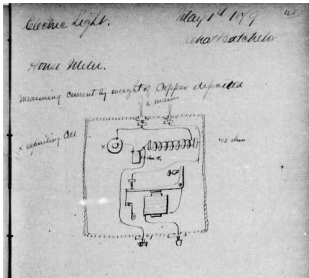 Electric Light. May 1st 1879
Chas Batchelor
House Meter.
Measuring current by weight of Copper deposited
main
x depositing Cell
x